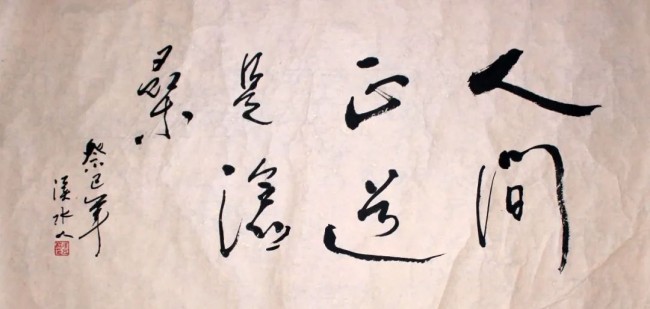 人间
正道
是沧
桑
癸巳年
汉水人